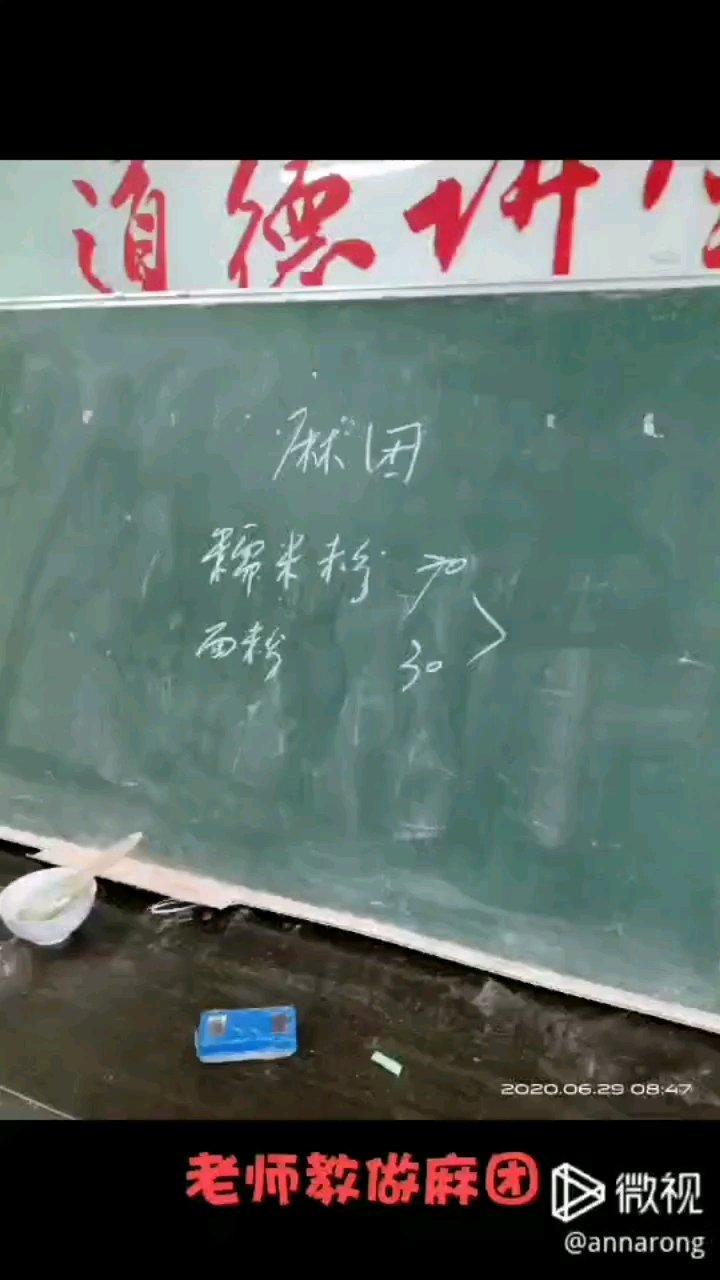 道德讲
麻团
糯米粉 70
面粉 30
2020.06.29 08:47
老师教做麻团
微视
@annarong